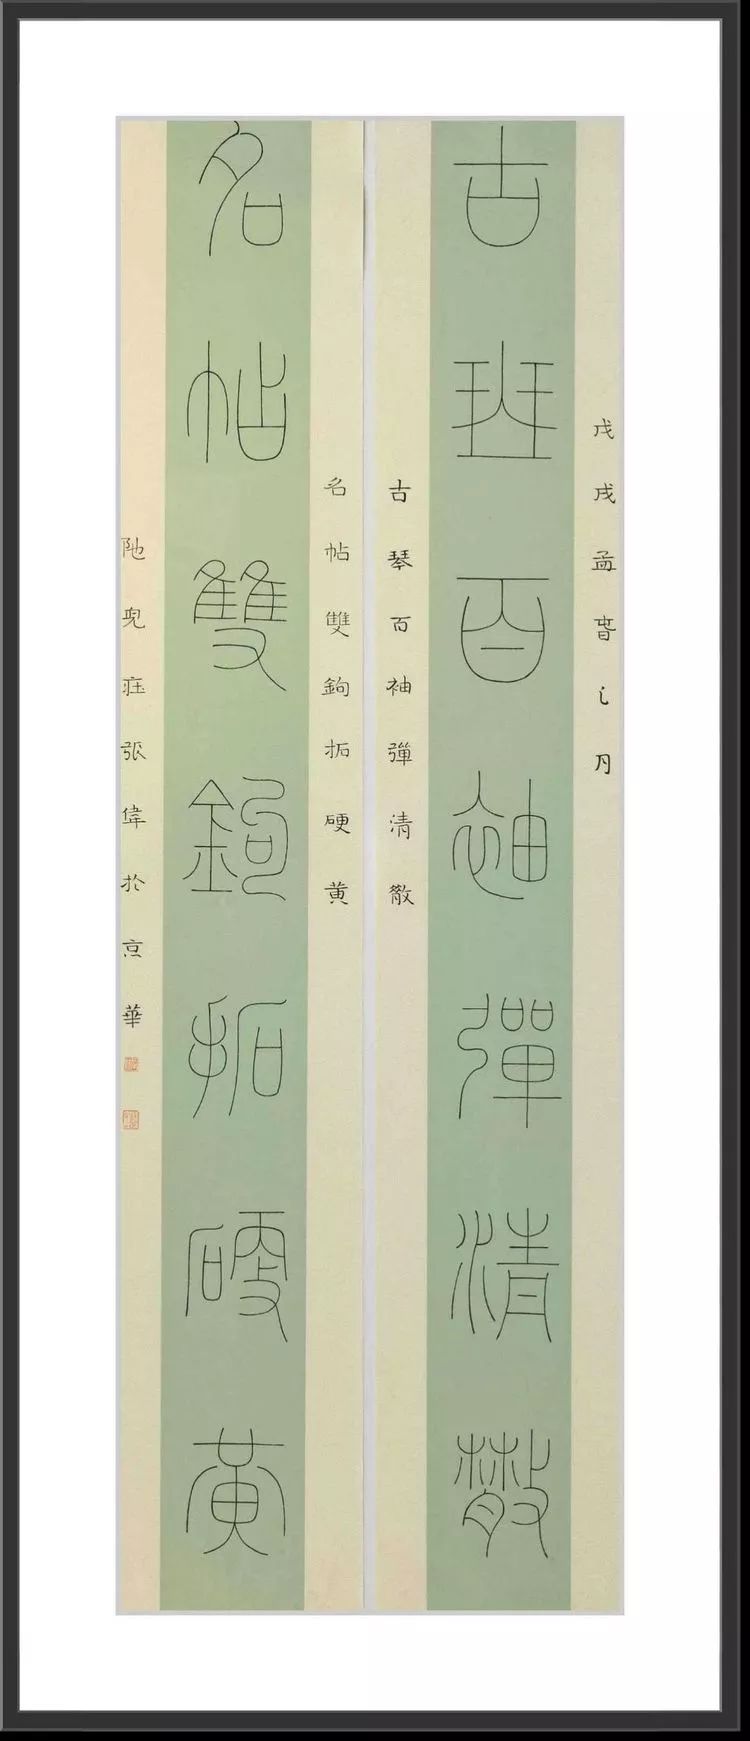 戊戌孟春之月
古琴百袖彈清散
古琴百袖彈清散
名帖雙鉤拓硬黃
名帖雙鉤拓硬黃
張偉於京華